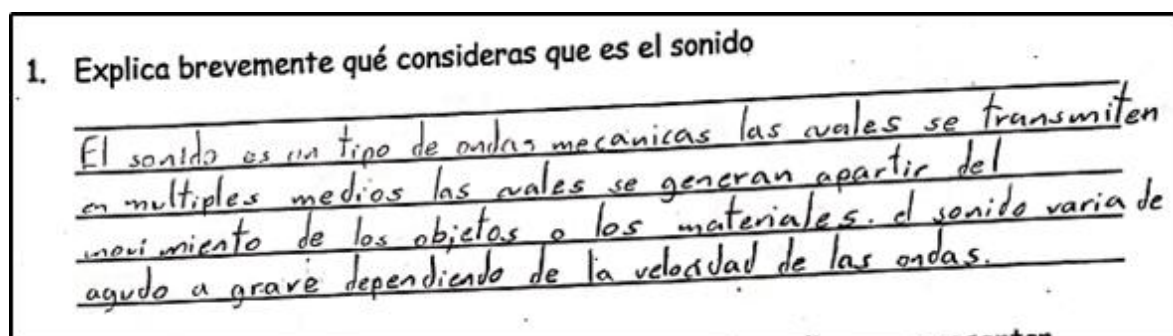 1. Explica brevemente qué consideras que es el sonido
El sonido es un tipo de ondas mecanicas las cuales se transmiten
en multiples medios las cuales se generan apartir del
movimiento de los objetos o los materiales. el sonido varia de
agudo a grave dependiendo de la velocidad de las ondas.